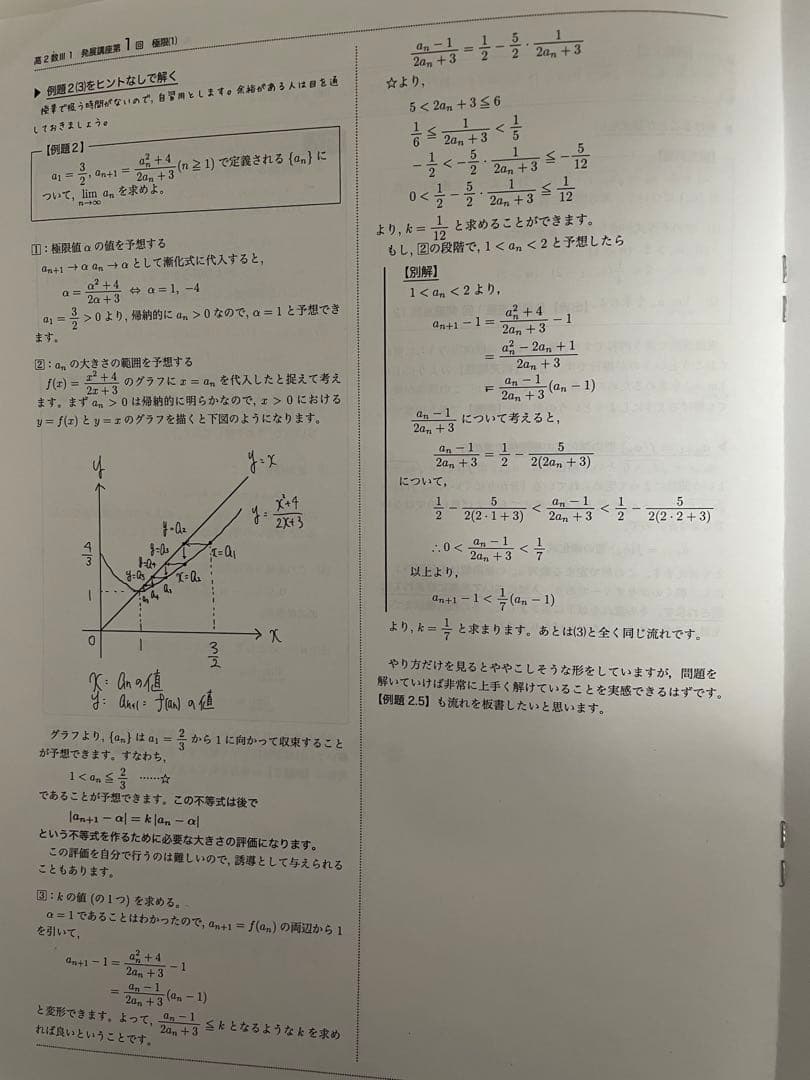 高2数Ⅲ1 発展講座第1回 極限(1)
▶ 例題2(3)をヒントなしで解く
授業で扱う時間がないので,自習用とします。余裕がある人は目を通
しておきましょう。
【例題2】
a₁ = 3/2, aₙ₊₁ = (aₙ² + 4)/(2aₙ + 3) (n ≧ 1) で定義される {aₙ} に
ついて, lim_{n→∞} aₙ を求めよ。
1:極限値 α の値を予想する
aₙ₊₁ → α aₙ → α として漸化式に代入すると,
α = (α² + 4)/(2α + 3) ⇔ α = 1, −4
a₁ = 3/2 > 0 より, 帰納的に aₙ > 0 なので, α = 1 と予想でき
ます。
2:aₙ の大きさの範囲を予想する
f(x) = (x² + 4)/(2x + 3) のグラフに x = aₙ を代入したと捉えて考え
ます。まず aₙ > 0 は帰納的に明らかなので, x > 0 における
y = f(x) と y = x のグラフを描くと下図のようになります。
y
y=x
y= (x²+4)/(2x+3)
y=a₂
y=a₃
y=a₄
y=a₅
x=a₁
x=a₂
a₃
a₄
4/3
1
0
1
3/2
x
x: aₙ の値
y: aₙ₊₁ = f(aₙ) の値
グラフより, {aₙ} は a₁ = 2/3 から 1 に向かって収束すること
が予想できます。すなわち,
1 < aₙ ≦ 2/3 ……☆
であることが予想できます。この不等式は後で
|aₙ₊₁ − α| = k |aₙ − α|
という不等式を作るために必要な大きさの評価になります。
この評価を自分で行うのは難しいので, 誘導として与えられる
こともあります。
3:k の値 (の1つ) を求める。
α = 1 であることはわかったので, aₙ₊₁ = f(aₙ) の両辺から 1
を引いて,
aₙ₊₁ − 1 = (aₙ² + 4)/(2aₙ + 3) − 1
= (aₙ − 1)/(2aₙ + 3) (aₙ − 1)
と変形できます。よって, (aₙ − 1)/(2aₙ + 3) ≦ k となるような k を求め
れば良いということです。
(aₙ − 1)/(2aₙ + 3) = 1/2 − 5/2 · 1/(2aₙ + 3)
☆より,
5 < 2aₙ + 3 ≦ 6
1/6 ≦ 1/(2aₙ + 3) < 1/5
−1/2 < −5/2 · 1/(2aₙ + 3) ≦ −5/12
0 < 1/2 − 5/2 · 1/(2aₙ + 3) ≦ 1/12
より, k = 1/12 と求めることができます。
もし, 2の段階で, 1 < aₙ < 2 と予想したら
【別解】
1 < aₙ < 2 より,
aₙ₊₁ − 1 = (aₙ² + 4)/(2aₙ + 3) − 1
= (aₙ² − 2aₙ + 1)/(2aₙ + 3)
= (aₙ − 1)/(2aₙ + 3) (aₙ − 1)
(aₙ − 1)/(2aₙ + 3) について考えると,
(aₙ − 1)/(2aₙ + 3) = 1/2 − 5/(2(2aₙ + 3))
について,
1/2 − 5/(2(2·1 + 3)) < (aₙ − 1)/(2aₙ + 3) < 1/2 − 5/(2(2·2 + 3))
∴ 0 < (aₙ − 1)/(2aₙ + 3) < 1/7
以上より,
aₙ₊₁ − 1 < 1/7 (aₙ − 1)
より, k = 1/7 と求まります。あとは(3)と全く同じ流れです。
やり方だけを見るとややこしそうな形をしていますが, 問題を
解いていけば非常に上手く解けていることを実感できるはずです。
【例題 2.5】も流れを板書したいと思います。